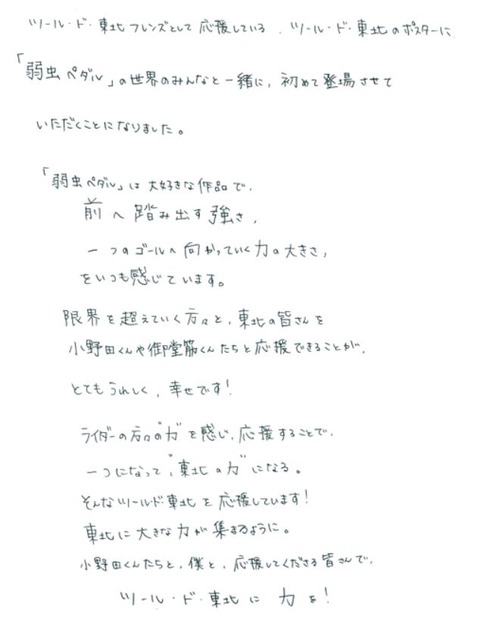 ツール・ド・東北フレンズとして応援している、ツール・ド・東北のポスターに
「弱虫ペダル」の世界のみんなと一緒に、初めて登場させて
いただくことになりました。
「弱虫ペダル」は大好きな作品で、
前へ踏み出す強さ、
一つのゴールへ向かっていく力の大きさ、
をいつも感じています。
限界を超えていく方々と、東北の皆さんを
小野田くんや御堂筋くんたちと応援できることが、
とてもうれしく、幸せです!
ライダーの方々の"力"を感じ、応援することで、
一つになって、"東北の力"になる。
そんなツールド・東北を応援しています!
東北に大きな力が集まるように。
小野田くんたちと、僕と、応援してくださる皆さんで、
ツール・ド・東北に力を!